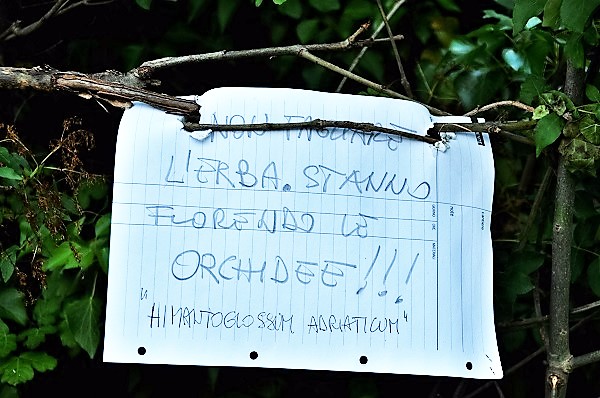 NON TAGLIARE
L'ERBA. STANNO
FIORENDO LE
ORCHIDEE!!!
"HIMANTOGLOSSUM ADRIATICUM"